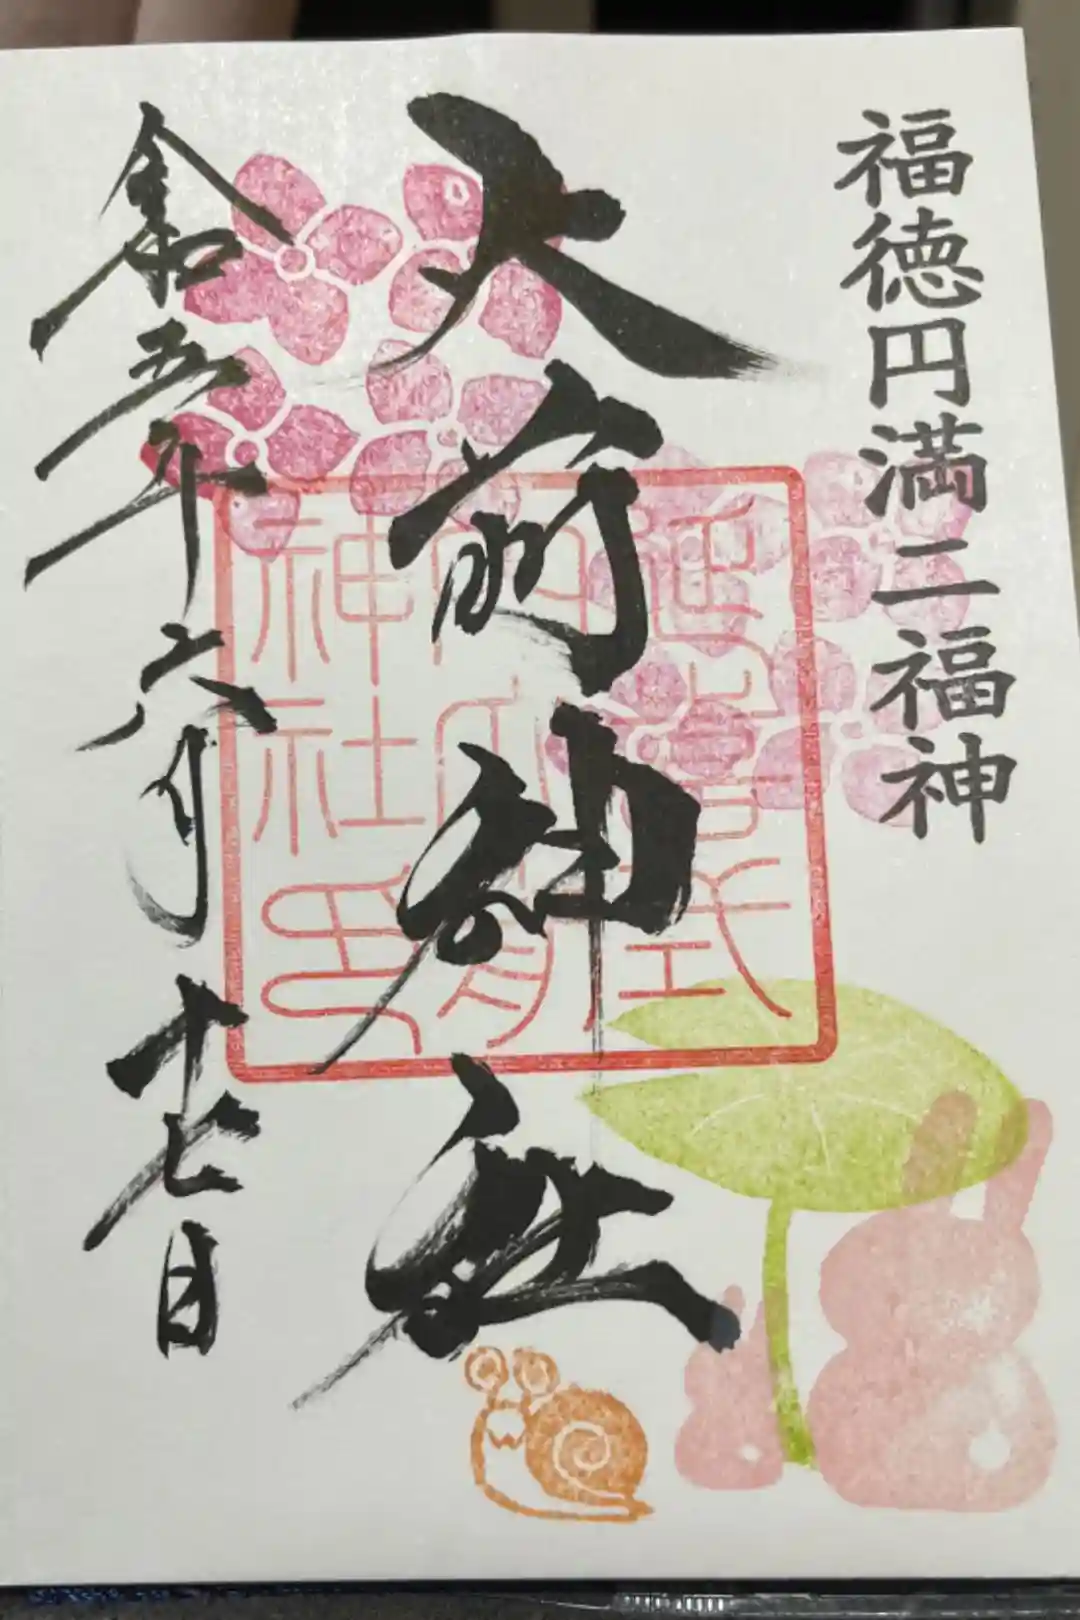 福徳円満二福神
大前神社
令和五年六月十七日
延喜式
内大前
神社印